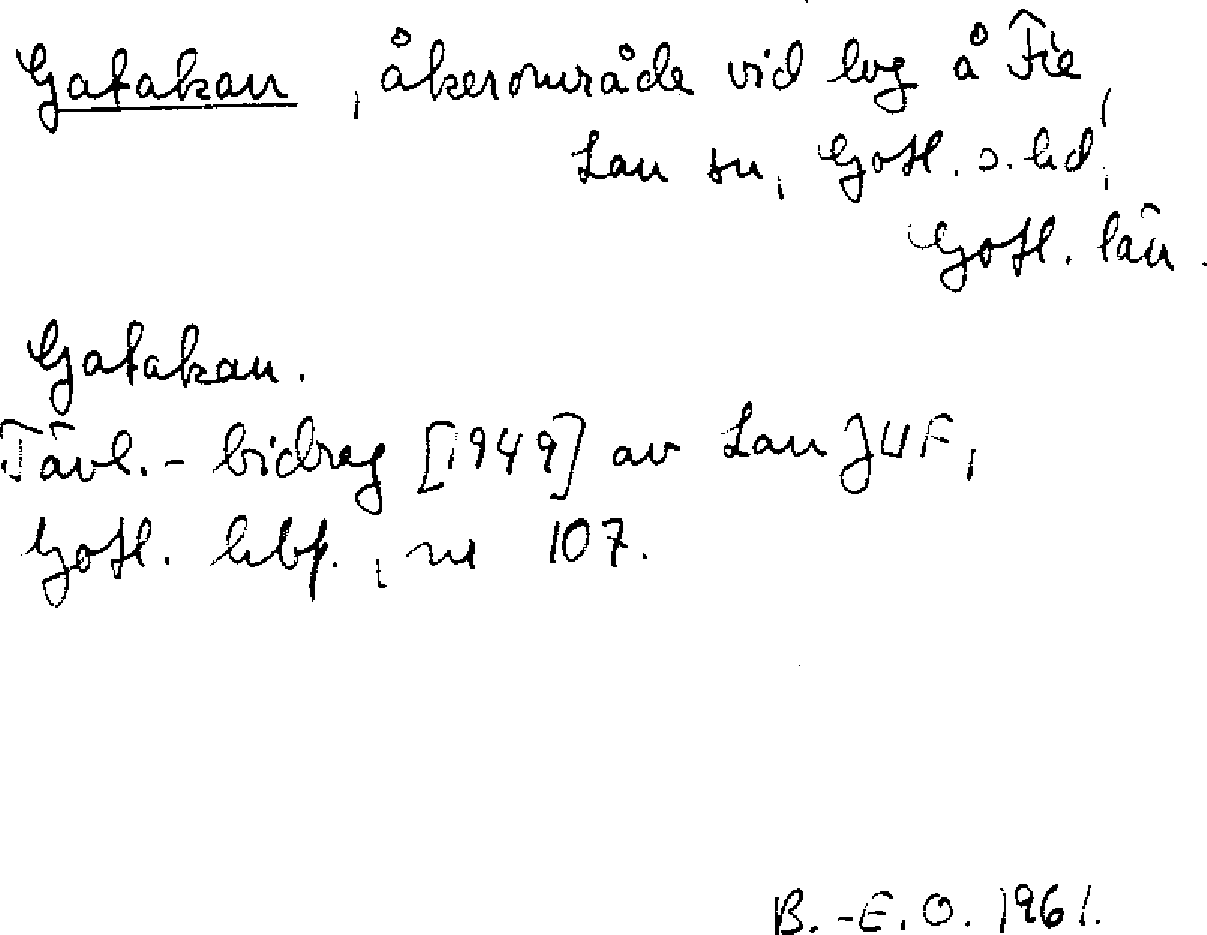 Gatakan, åkerområde vid log å Fie,
Lau sn, Gotl. s. hd,
Gotl. län.
Gatakan.
Tävl.-bidrag [1949] av Lau JUF,
Gotl. hbf., nr 107.
B.-E. O. 1961.